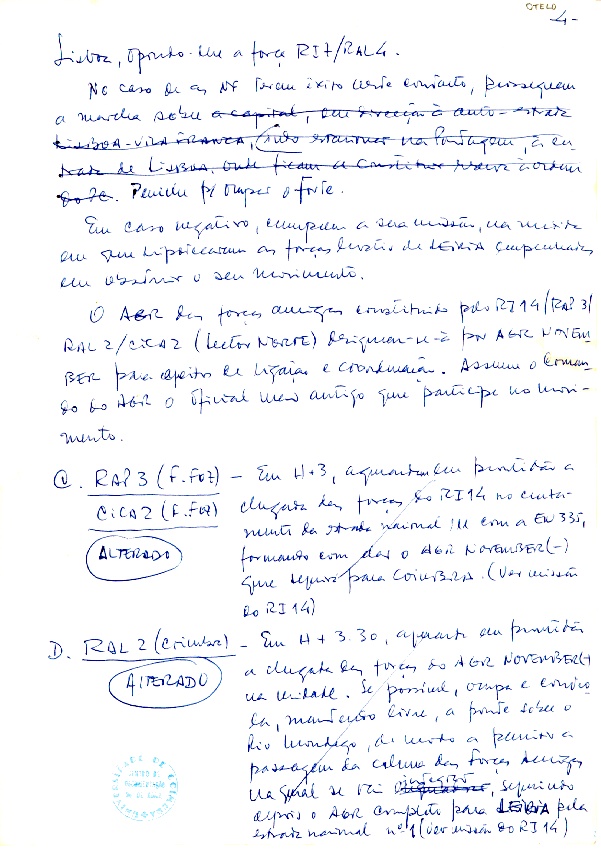 OTELO
4-
Lisboa, opondo-lhe a força RI7/RAL4.
No caso de as NF terem êxito neste contacto, prosseguem
a marcha sobre a capital, em direcção à auto-estrada
LISBOA-VILA FRANCA, indo estacionar na Portagem, à en-
trada de LISBOA, onde ficam a constituir reserva à ordem
do PC. Peniche p/ ocupar o forte.
Em caso negativo, cumprem a sua missão, na medida
em que hipotecaram as forças de LEIRIA empenhadas
em obstruir o seu movimento.
O AGR das forças amigas constituido pelo RI14/RAP3/
RAL2/CICA2 (Sector NORTE) designar-se-á por AGR NOVEM-
BER para efeitos de ligação e coordenação. Assume o coman-
do do AGR o oficial mais antigo que participe no movi-
mento.
C. RAP3 (F.FOZ) - Em H+3, aguardam em prontidão a
CICA2 (F.FOZ) chegada das forças do RI14 no cruza-
mento da estrada nacional 111 com a EN 335,
ALTERADO formando com elas o AGR NOVEMBER(-)
que seguirá para COIMBRA. (Ver missão
do RI14)
D. RAL2 (Coimbra) - Em H+3.30, aguarda em prontidão
ALTERADO a chegada das forças do AGR NOVEMBER(-)
na unidade. Se possível, ocupa e contro-
la, mantendo livre, a ponte sobre o
Rio Mondego, de modo a permitir a
passagem da coluna das forças amigas
na qual se vai integrar, seguindo
depois o AGR completo para LEIRIA pela
estrada nacional nº1 (ver missão do RI14)